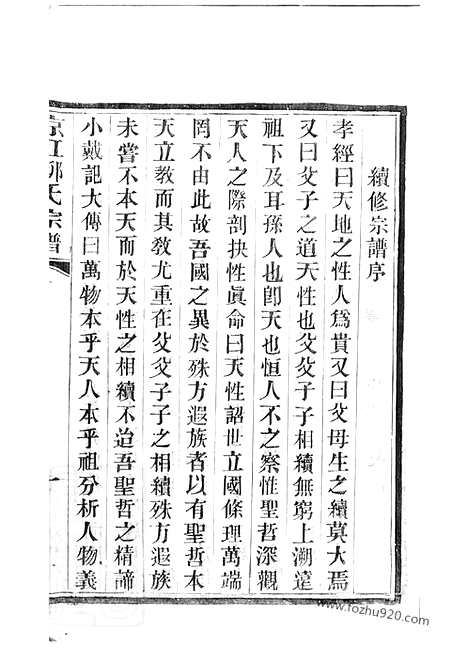 續修宗譜序
孝經曰天地之性人爲貴又曰父母生之續莫大焉
又曰父子之道天性也父父子子相續無窮上溯遠
祖下及耳孫人也卽天也恒人不之察惟聖哲深觀
天人之際剖抉性眞命曰天性詔世立國條理萬端
罔不由此故吾國之異於殊方遐族者以有聖哲本
天立教而其敎尤重在父父子子之相續殊方遐族
未嘗不本天而於天性之相續不迨吾聖哲之精諦
小戴記大傳曰萬物本乎天人本乎祖分析人物義
京江郭氏宗譜
一
www.fozhu920.com